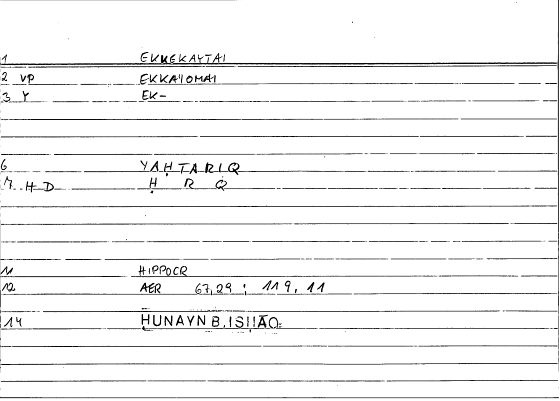 1 EKKEKAYTAI
2 VP EKKAIOMAI
3 Y EK-
6 YAḤTARIQ
7 HD Ḥ R Q
11 HIPPOCR
12 AER 67,29 ; 119, 11
14 ḤUNAYN B. ISḤĀQ